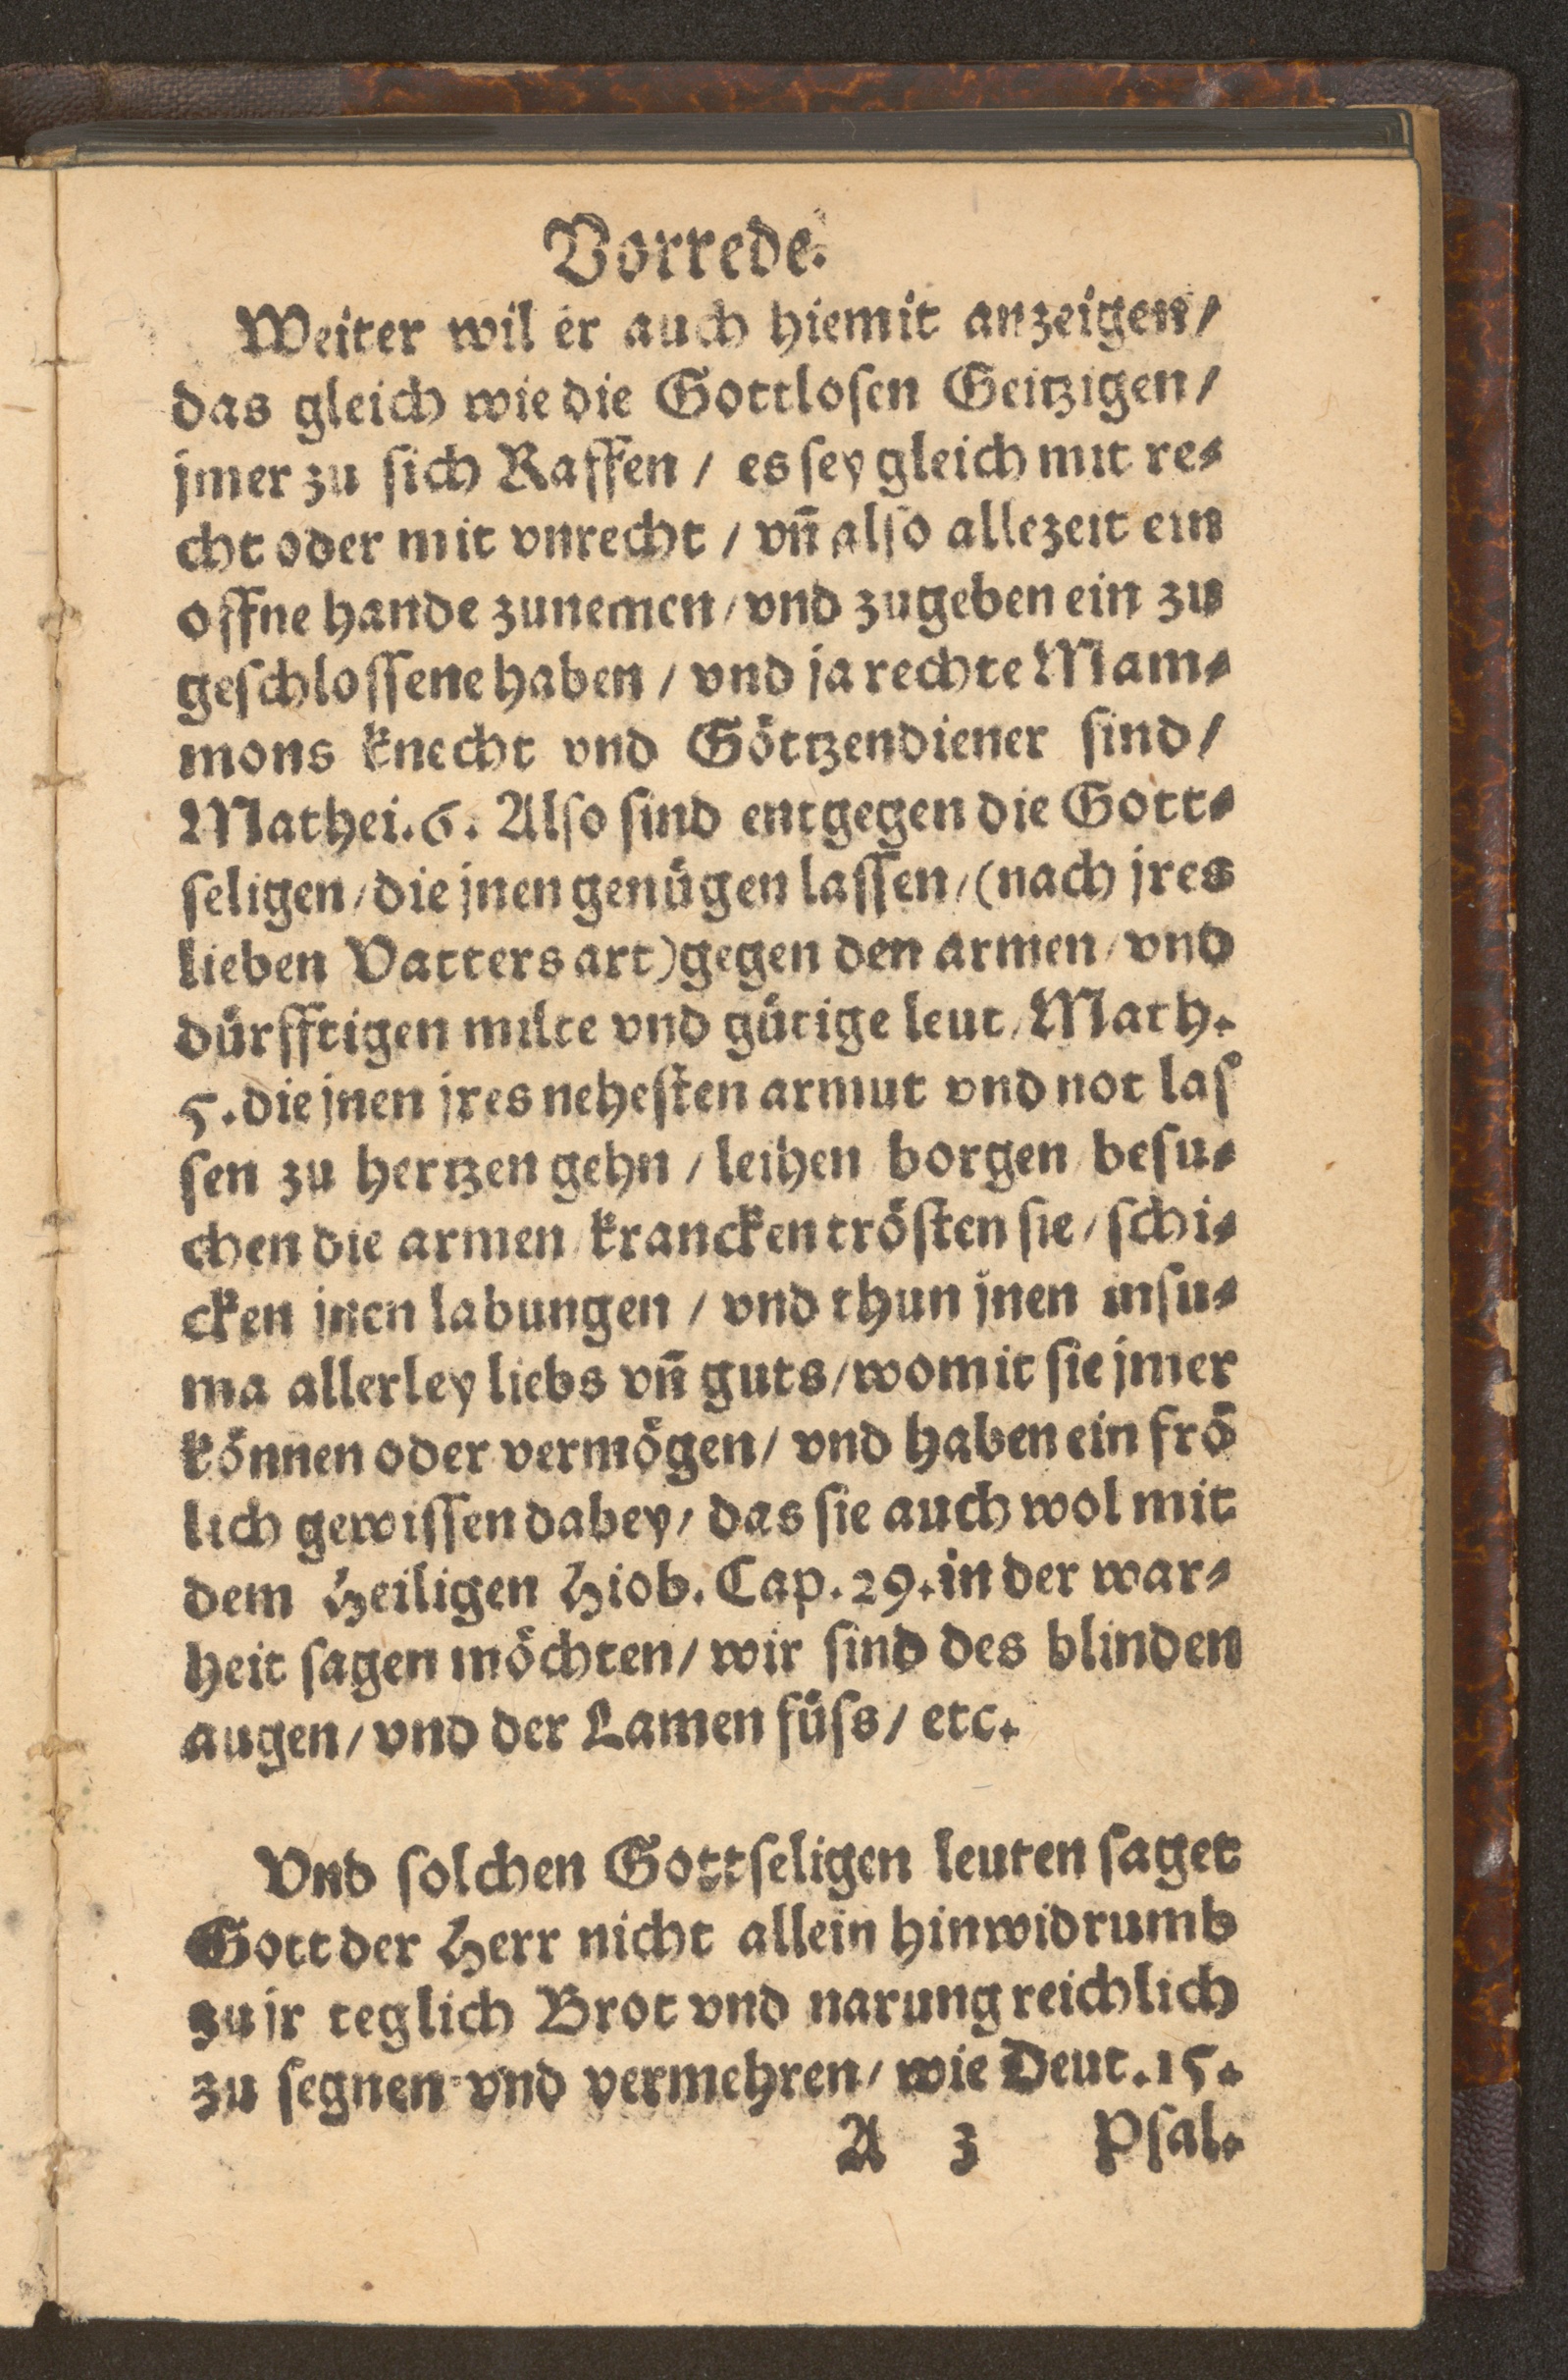 Vorrede.
Weiter wil er auch hiemit anzeigen/
das gleich wie die Gottloſen Geitzigen/
jmer zu ſich Raffen / es ſey gleich mit re⸗
cht oder mit vnrecht / vñ alſo allezeit ein
offne hande zunemen/ vnd zugeben ein zu
geſchloſſene haben / vnd ja rechte Mam⸗
mons knecht vnd Göttzendiener ſind/
Mathei. 6. Alſo ſind entgegen die Gott⸗
ſeligen/ die jnen genügen laſſen/ (nach jres
lieben Vatters art) gegen den armen/ vnd
dürfftigen milte vnd gütige leut/ Math.
5. die jnen jres neheſten armut vnd not laſ
ſen zu hertzen gehn / leihen/ borgen/ beſu⸗
chen die armen/ krancken tröſten ſie/ ſchi⸗
cken jnen labungen / vnd thun jnen inſu⸗
ma allerley liebs vñ guts/ womit ſie jmer
können oder vermögen/ vnd haben ein frö
lich gewiſſen dabey/ das ſie auch wol mit
dem Heiligen Hiob. Cap. 29. in der war⸗
heit ſagen möchten/ wir ſind des blinden
augen/ vnd der Lamen füſs/ etc.
Vnd ſolchen Gottſeligen leuten ſaget
Gott der Herr nicht allein hinwidrumb
zu jr teglich Brot vnd narung reichlich
zu ſegnen vnd vermehren/ wie Deut. 15.
A 3 Pſal.